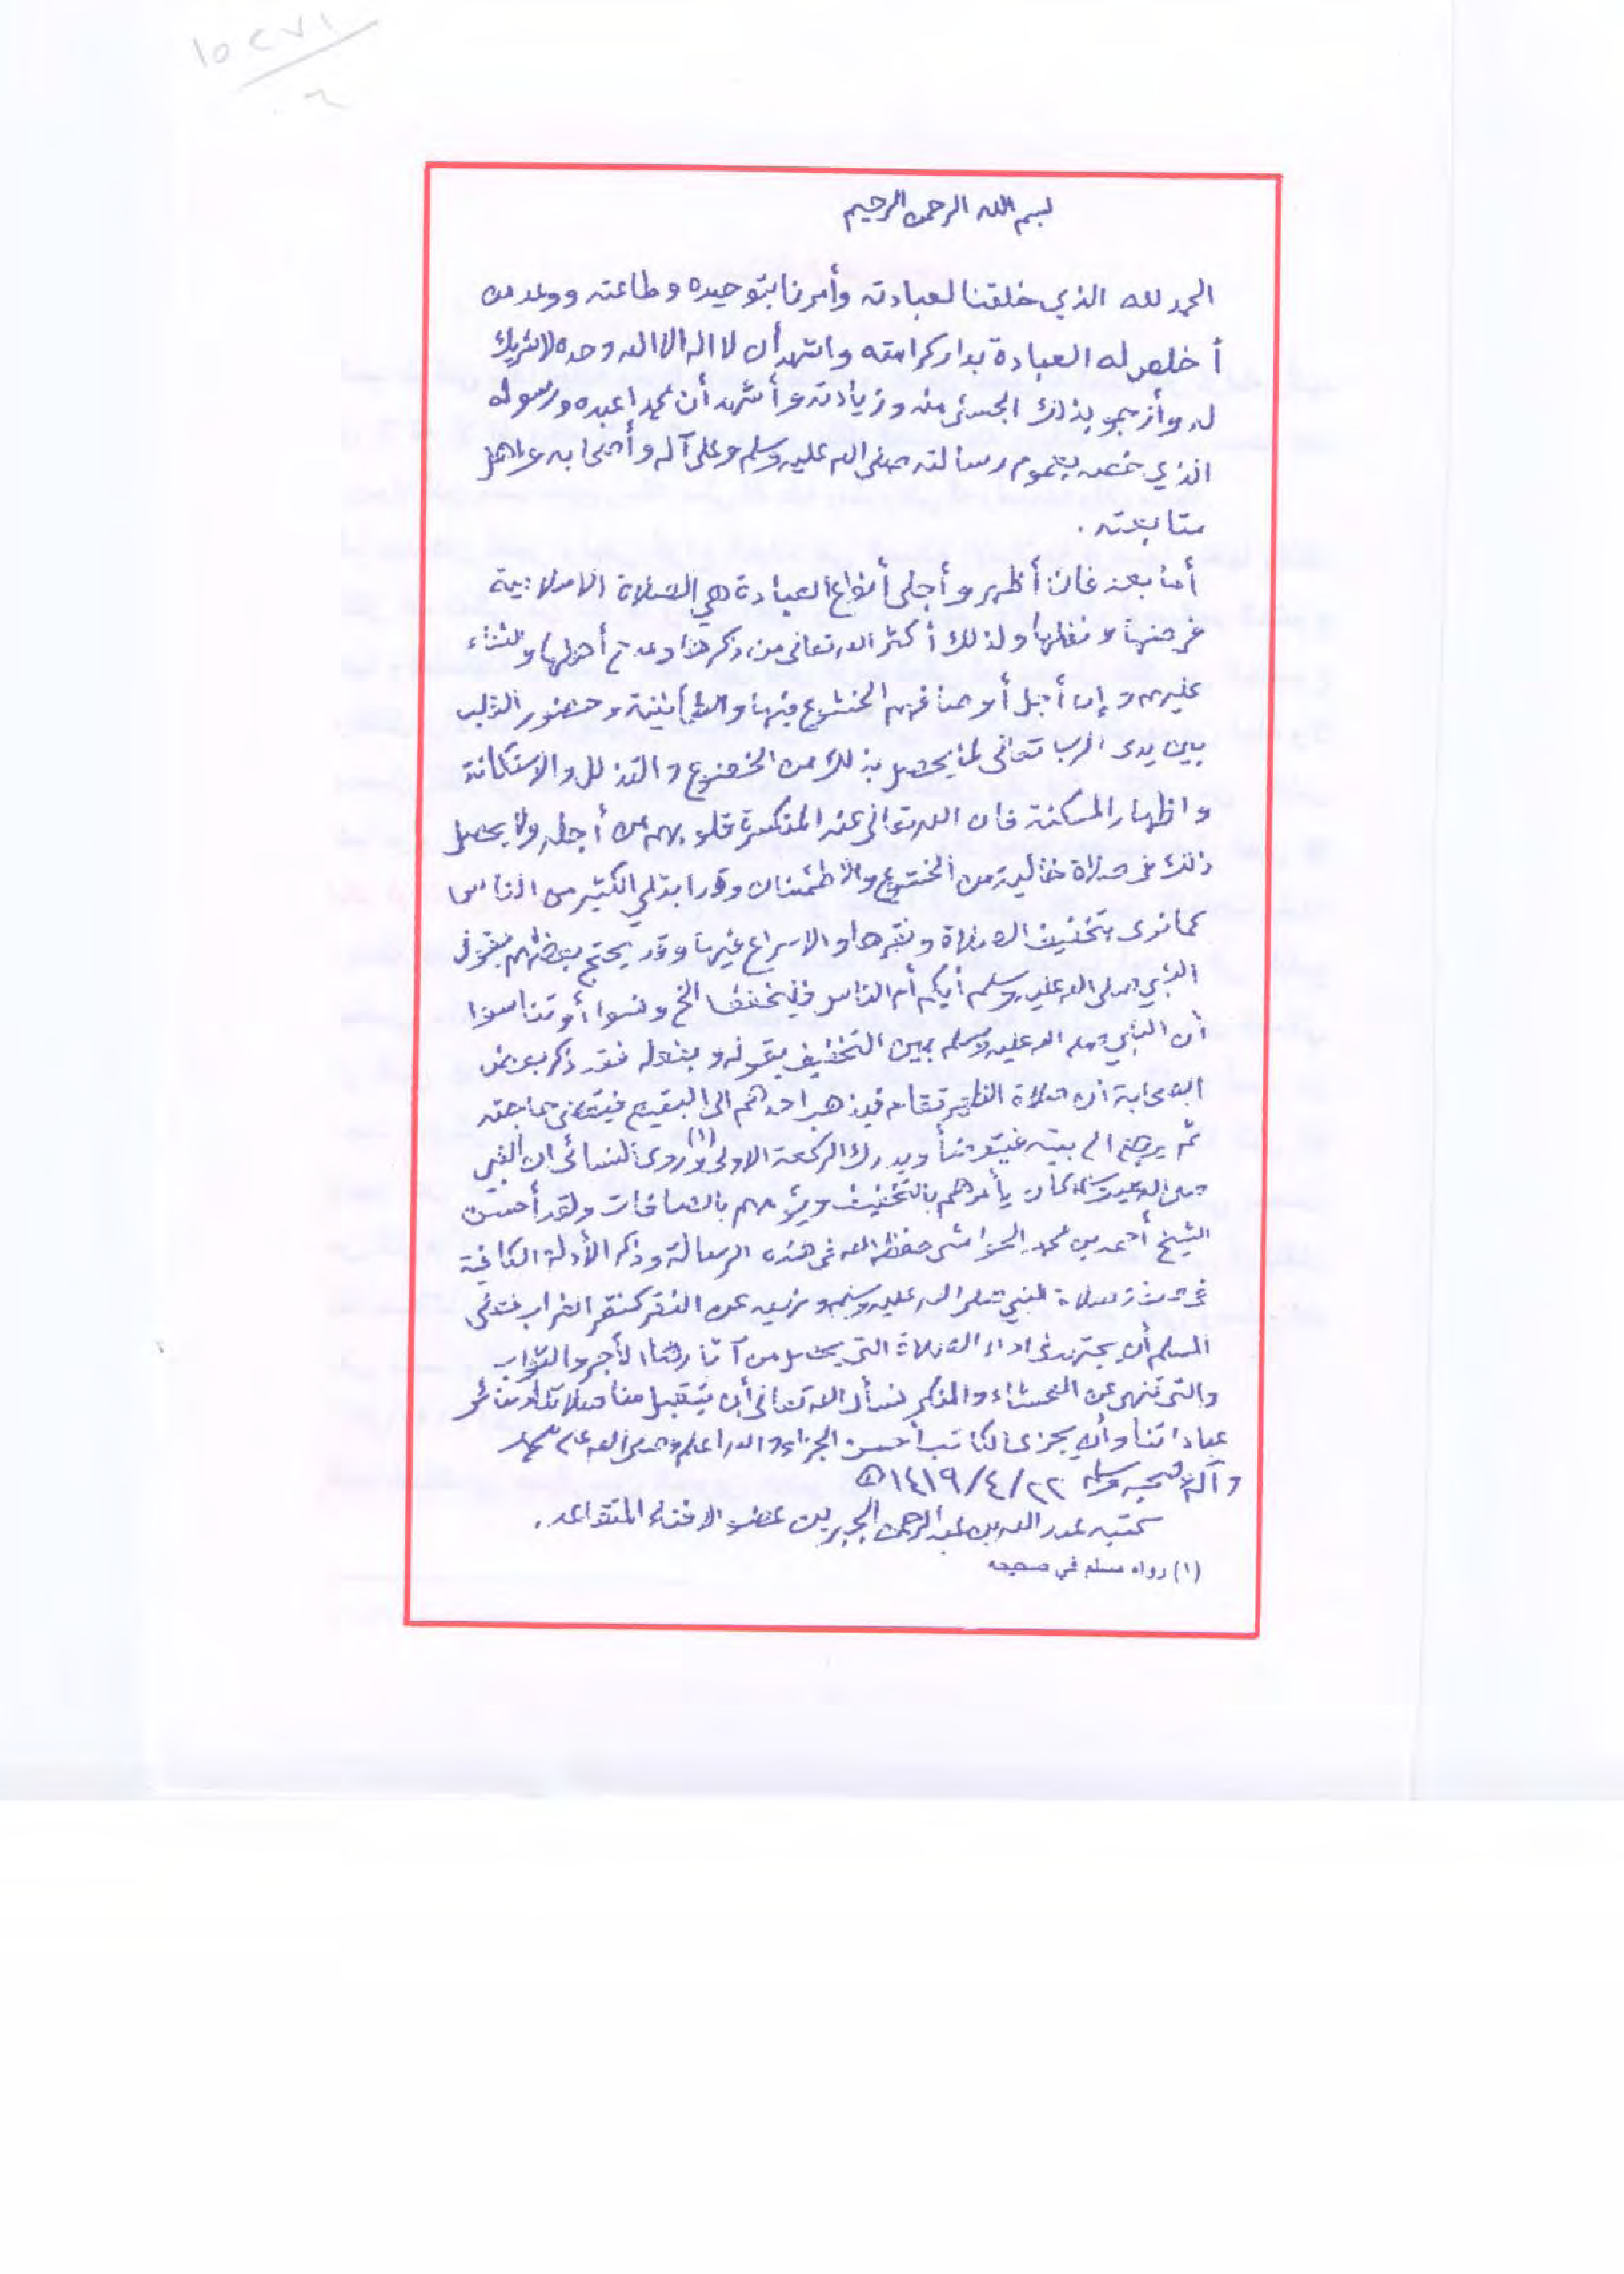 ١٥٢٧١
بسم الله الرحمن الرحيم
الحمد لله الذي خلقنا لعبادته وأمرنا بتوحيده وطاعته ووعد من
أخلص له العبادة بدار كرامته واشهد أن لا اله الا الله وحده لا شريك
له وأرجو بذلك الحسنى منه وزيادته وأشهد أن محمدا عبده ورسوله
الذي خصه بعموم رسالته صلى الله عليه وسلم وعلى آله وأصحابه وأهل
متابعته .
أما بعد فان أظهر وأجلى أنواع العبادة هي الصلاة الاسلامية
فرضها ونفلها ولذلك أكثر الله تعالى من ذكرها ومدح أهلها والثناء
عليهم وإن أجل أوصافهم الخشوع فيها والطمأنينة وحضور القلب
بين يدى الرب تعالى لما يحصل بذلك من الخضوع والتذلل والاستكانة
واظهار المسكنة فان الله تعالى عند المنكسرة قلوبهم من أجله ولا يحصل
ذلك في صلاة خالية من الخشوع والاطمئنان وقد ابتلي الكثير من الناس
كما نرى بتخفيف الصلاة ونقرها والاسراع فيها وقد يحتج بعضهم بقول
النبي صلى الله عليه وسلم أيكم أم الناس فليخفف الخ ونسوا أو تناسوا
أن النبي صلى الله عليه وسلم بين التخفيف بقوله وبفعله فقد ذكر بعض
الصحابة أن صلاة الظهر تقام فيذهب احدهم الى البقيع فيقضى حاجته
ثم يرجع الى بيته فيتوضأ ويدرك الركعة الاولى (١) وروى النسائى ان النبي
صلى الله عليه وسلم كان يأمرهم بالتخفيف ويؤمهم بالصافات ولقد أحسن
الشيخ أحمد بن محمد الحواشى حفظه الله في هذه الرسالة وذكر الأدلة الكافية
في صفة صلاة النبي صلى الله عليه وسلم ونهيه عن النقر كنقر الغراب فعلى
المسلم أن يجتهد في اداء الصلاة التي يحصل من آثارها الأجر والثواب
والتي تنهى عن الفحشاء والمنكر نسأل الله تعالى أن يتقبل منا صلاتنا وسائر
عباداتنا وأن يجزى الكاتب أحسن الجزاء والله اعلم وصلى الله على محمد
وآله وصحبه وسلم ١٤١٩/٤/٢٢ هـ
كتبه عبد الله بن عبد الرحمن الجبرين عضو الافتاء المتقاعد .
(١) رواه مسلم في صحيحه